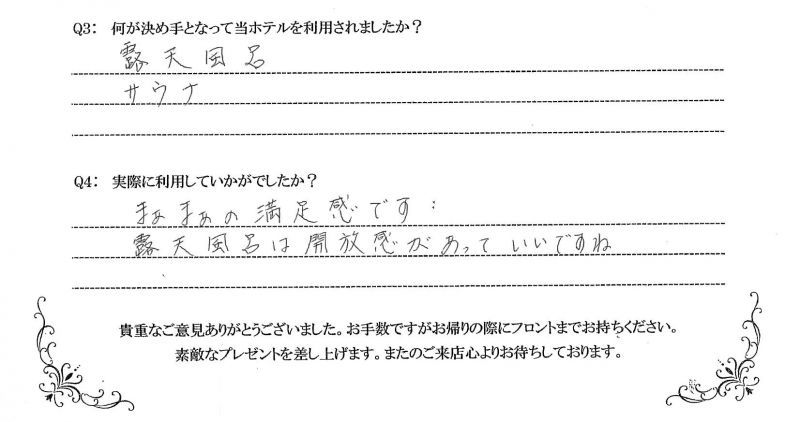 Q3： 何が決め手となって当ホテルを利用されましたか？
露天風呂
サウナ
Q4： 実際に利用していかがでしたか？
まぁまぁの満足感です：
露天風呂は開放感があっていいですね
貴重なご意見ありがとうございました。お手数ですがお帰りの際にフロントまでお持ちください。
素敵なプレゼントを差し上げます。またのご来店心よりお待ちしております。